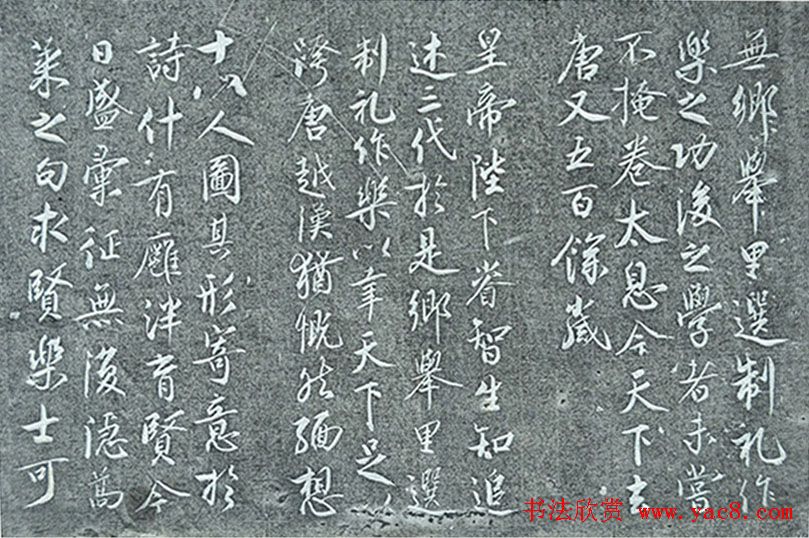 無鄉舉里選制礼作
樂之功後之學者未嘗
不掩卷太息今天下去
唐又五百餘歲
皇帝陛下睿智生知追
述三代於是鄉舉里選
制礼作樂以幸天下足以
跨唐越漢猶慨然緬想
十八人圖其形寄意於
詩什有廱泮育賢今
日盛彙征無復隱蒿
萊之句求賢樂士可
书法欣赏 www.yac8.com